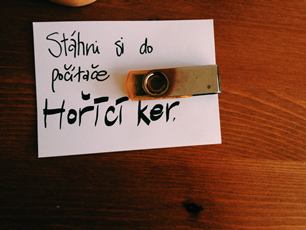 Stáhni si do
počítače
Hořící keř.